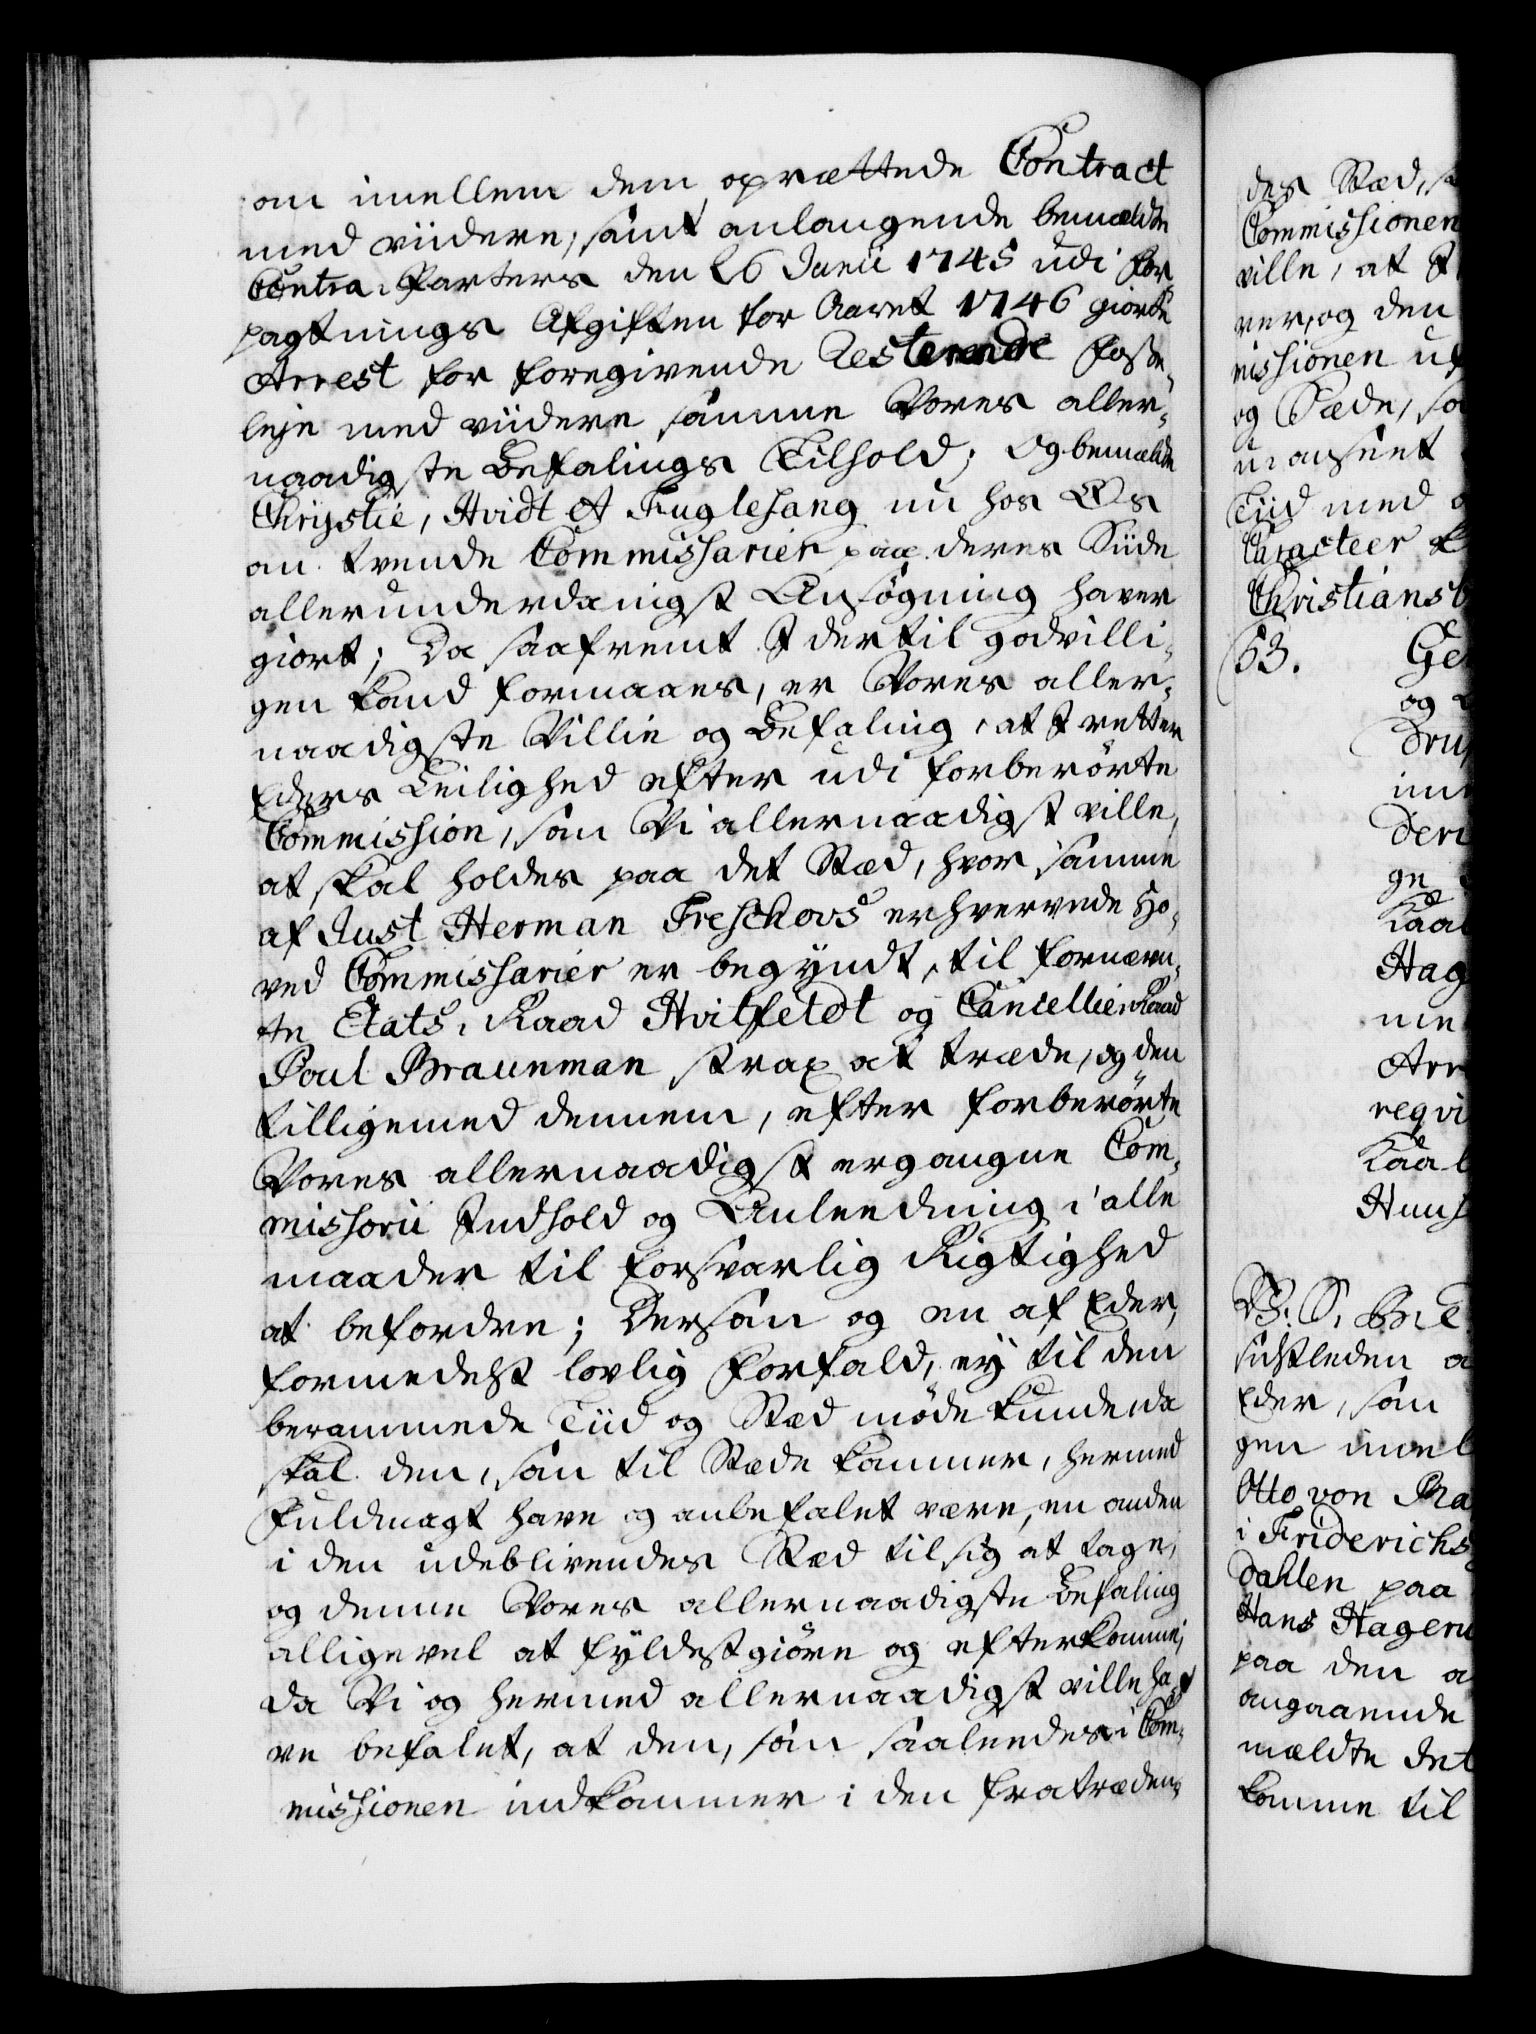 om imellem dem oprættede Contract
med viidere, samt anlangende bemældte
Contra-Parters den 26 Junii 1745 udi For¬
pagtnings Afgiften for Aaret 1746 giorte
Arrest for foregivende Resterende Fosse¬
leje med viidere samme Vores aller¬
naadigste Befalings Tilhold; Og bemældte
Chrystie, Hvidt & Fuglesang nu hos Os
om tvende Commissarier paa deres Siide
allerunderdanigst Ansøgning haver
giort; Da saafremt I dertil godvilli¬
gen kand formaaes, er Vores aller¬
naadigste Villie og Befaling, at I retter
Eders Leilighed efter udi forberørte
Commission, som Vi allernaadigst ville,
at skal holdes paa det Stæd, hvor samme
af Just Herman Freschovs erhvervede Ho¬
ved Commissarier er begyndt, til fornævn¬
te Etats-Raad Hvitfeldt og Cancellie Raad
Poul Braunman strax at træde, og den
tilligemed dennem, efter forberørte
Vores allernaadigst ergangne Com¬
missorii Indhold og Anleedning i alle
maader til forsvarlig Rigtighed
at befordre; Dersom og en af Eder,
formedelst lovlig Forfald, ey til den
berammede Tiid og Stæd møde kunde, da
skal den, som til Stæde kommer, hermed
Fuldmagt have og anbefalet være, en anden
i den udeblivendes Stæd til sig at tage,
og denne Vores allernaadigste Befaling
alligevel at fyldestgiøre og efterkomme,
da Vi og hermed allernaadigst ville ha¬
ve befalet, at den, som saaleedes i Com¬
missionen indkommer i den fratrædens
des Stæd, s
Commissionen
ville, at I
ver, og den
missionen u
og Sæde, so
Tiid med
Caracteer
Christiansb
53. Ge
og
Dru
im
der
ge
Kaal
Hag
me
Arr
reqvi
Kaal
Huus
sidstleden a
Eder, som
gen imel
Otto von Ra
i Friderichs
Dahlen paa
Hans Hageru
paa den a
angaaende
mældte Int
komme til